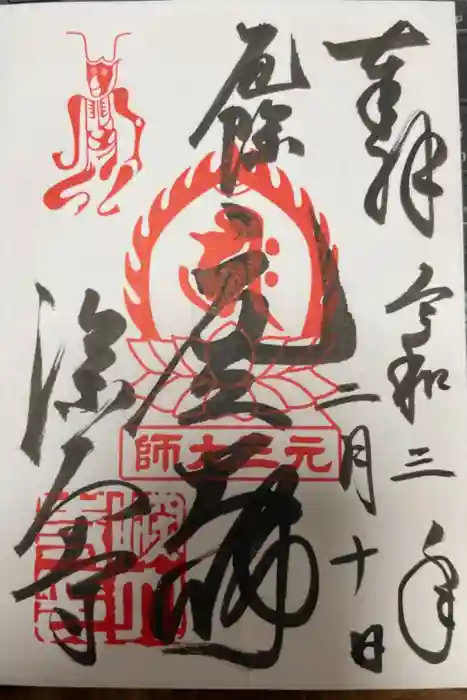 奉拝 令和三年
二月十日
厄除
元三大師
元三大師
深大寺